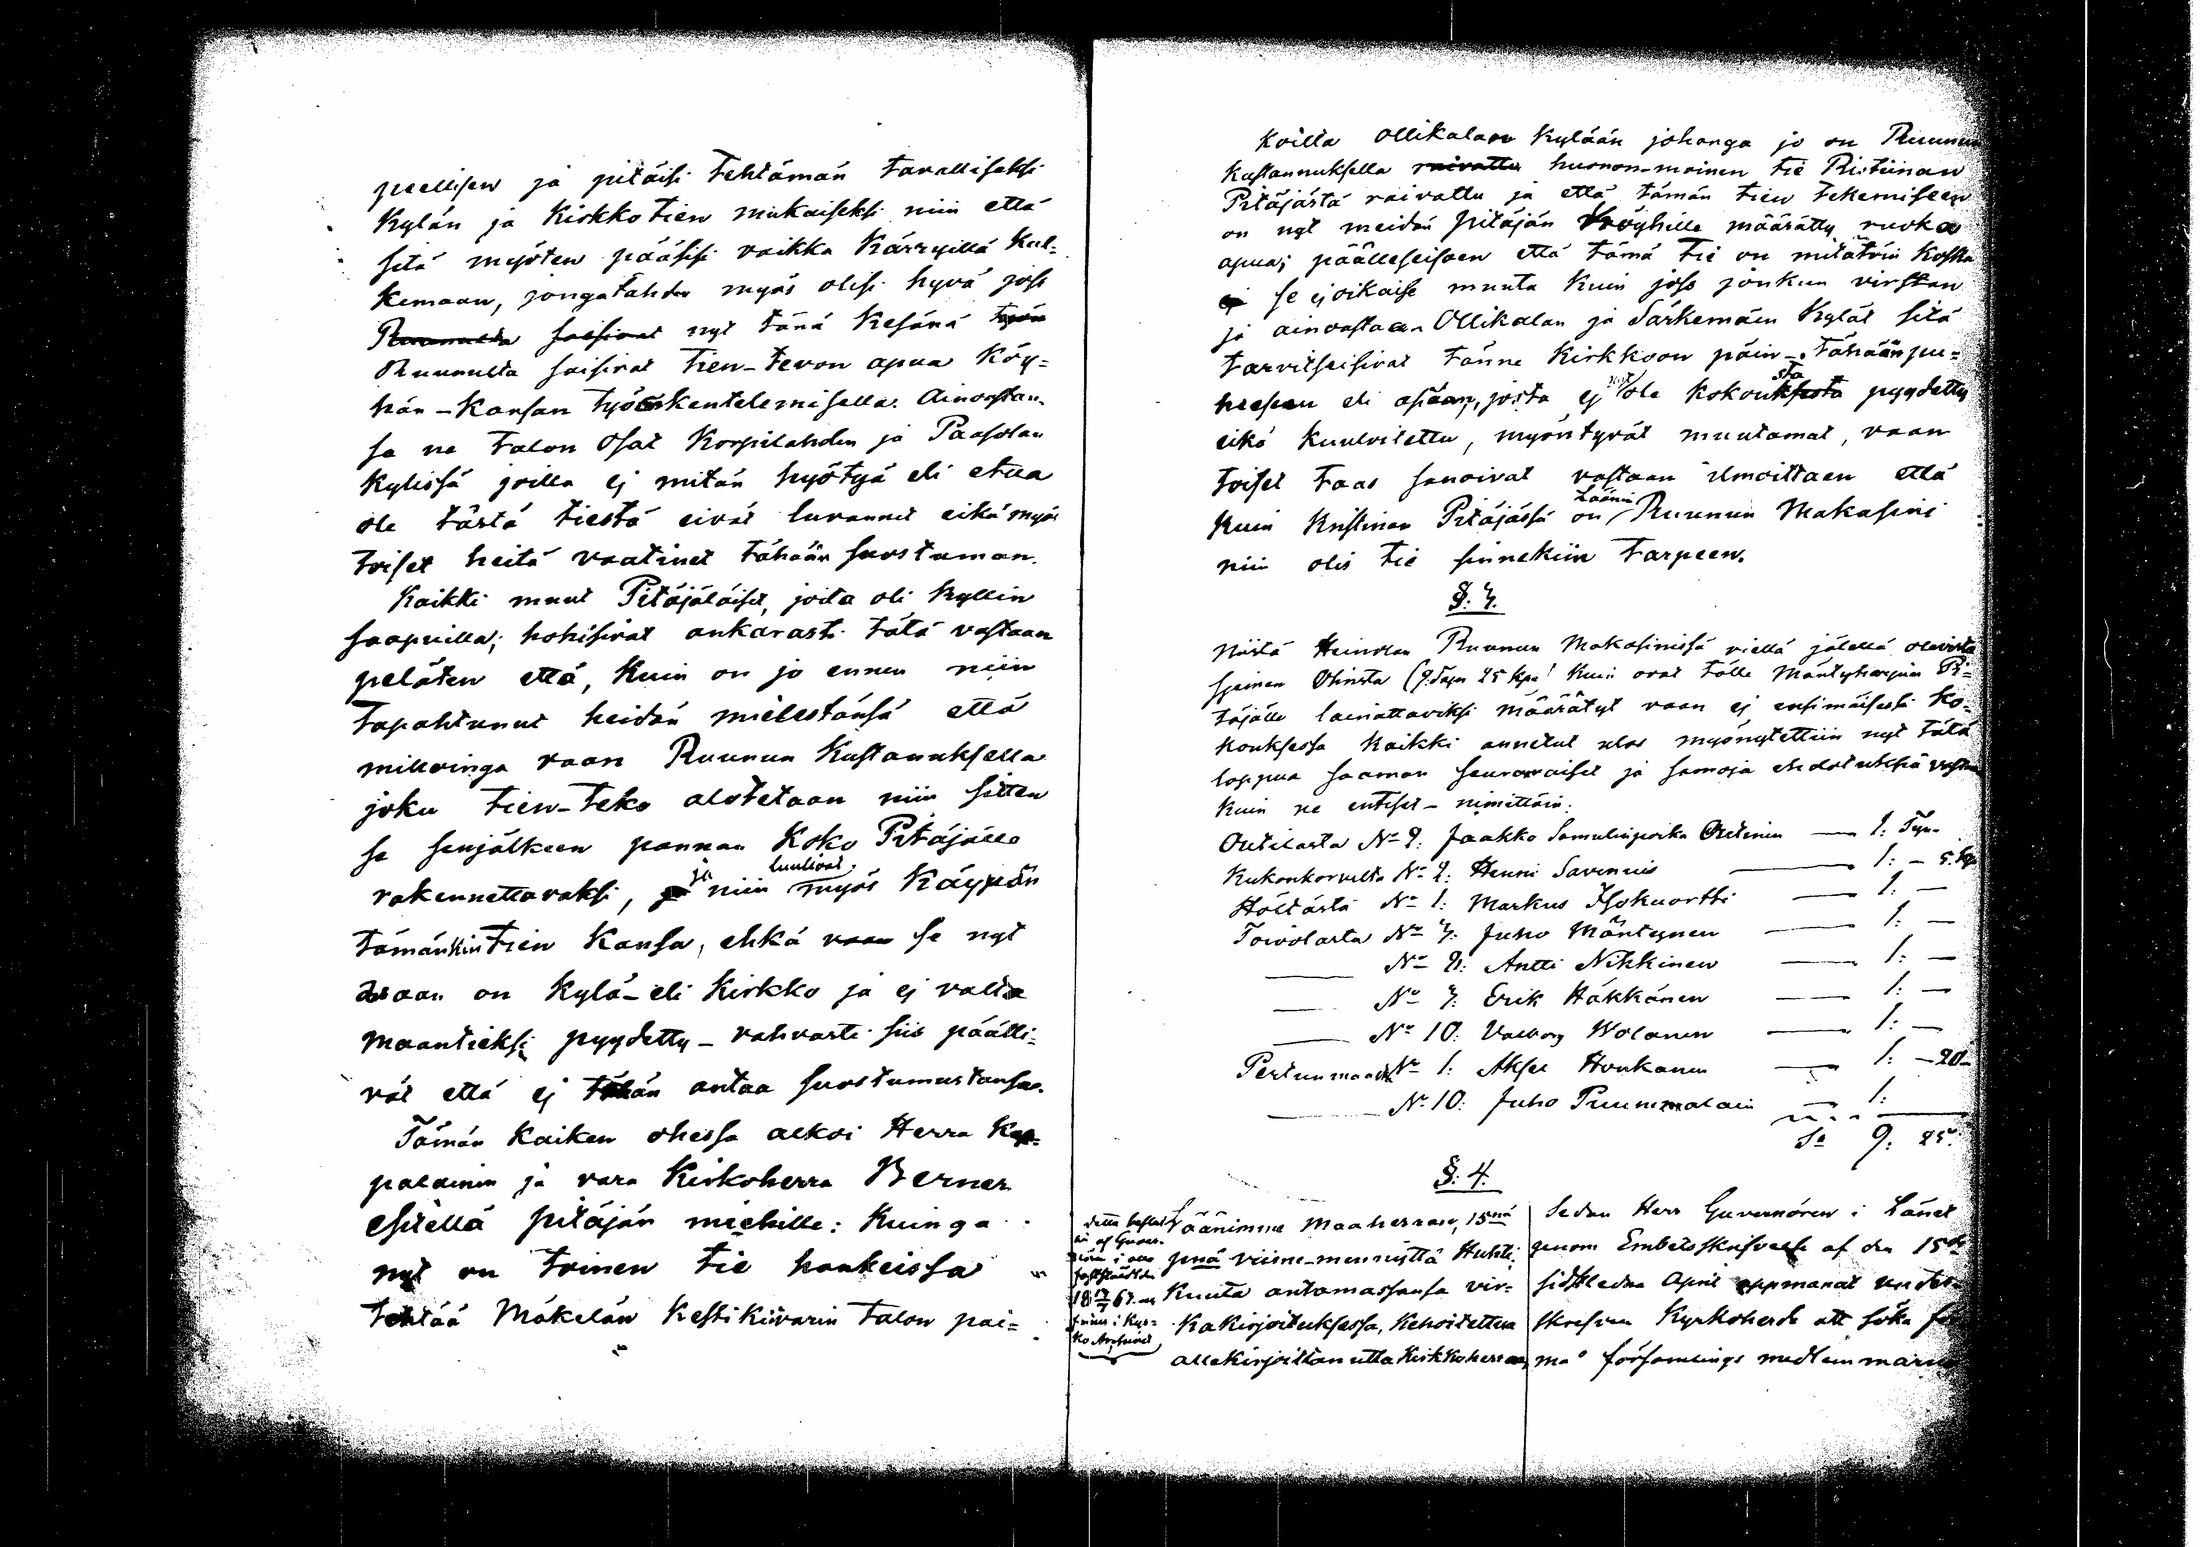 peellisen ja pitäisi tehtämän tavalliseksi
Kylän ja Kirkko tien mukaiseksi niin että
sitä myöten pääsisi vaikka Kärryillä Kul=
kemaan, jongatähden myös olisi hyvä joss
Ruunulta saisivat nyt tänä Kesänä työn
Ruunulta saisivat tien-tevon apua Köy=
hän-Kansan työskentelemisellä. Ainoastan-
sa ne talon osat Korpilahden ja Paasolan
Kylissä joilla ej mitän hyötyä eli etua
ole tästä tiestä eivät luvannet eikä myös
toiset heitä vaatinet tähään suostuman.
Kaikki muut Pitäjäläiset, joita oli Kyllin
saapuilla; hohisivat ankarasti tätä vastaan
peläten että, Kuin on jo ennen niin
tapahtunut heidän mielestänsä että
milloinga vaan Ruunun Kustanuksella
joku tien-teko alotetaan niin sitten
se senjälkeen pannan Koko Pitäjälle
rakennettavaksi, ja niin luulivat myös Käypän
tämänkin tien Kansa, ehkä vaan se nyt
vaan on Kylä-eli Kirkko ja ej valta
maantieksi pyydetty - vahvasti siis päätti=
vät että ej tähän antaa suostumustansa.
Tämän Kaiken ohessa alkoi Herra Kap=
palainin ja vara Kirkoherra Berner
esitellä pitäjän miehille: Kuinga
nyt on toinen tie hankeissa
tehtää Mäkelän Kestikiivarin talon pai=
koilta Ollikalaan Kylään johonga jo on Ruunun
Kustannuksella raivattu huonon-moinen tie Ristiinan
Pitäjästä raivattu ja että tämän tien tekemiseen
on nyt meidän pitäjän Köyhille määrätty ruoka
apua; päälleseisoen että tämä tie on mitätöin Koska
se ej oikaise muuta Kuin joss jonkun virstan
ja ainoastaan Ollikalan ja Särkemäen Kylät sitä
tarvitseisivat tänne Kirkkoon päin - Tähään pu=
heesen eli asiaan, josta ej nyt ole Kokouksesta pyydetty
eikä Kuuloitettu, myöntyvät muutamat, vaan
toiset taas sanoivat vastaan ilmoittaen että
Kuin Kristinan Pitäjässä on Läänin Ruunun Makasini
niin olis tie sinnekiin tarpeen.
§: 3.
Niistä Heinolan Ruunun Makasinissä viellä jälellä olevista
sieinen Ohrista (9 Tyn 25 kpa) Kuin ovat tälle Mäntyharjun Pi=
täjälle lainattaviksi määrätyt vaan ej ensimäisessä Ko=
kouksessa Kaikki annetut ulos myönytettiin nyt tätä
loppua saaman seuraavaiset ja samoja ehdotuksia vasten
Kuin ne entiset - nimittäin:
Outilasta No 2: Jaakko Samulinpoika Outinen — 1: Tyn.
Kukonkorvelta No 2: Henrri Savenius — 1: - 5. kp
Höltästä No 1: Markus Isokuortti — 1: —
Toivolasta No 3: Juho Mäntynen — 1: —
— No 2: Antti Nikkinen — 1: —
— No 3: Erik Häkkänen — 1: —
— No 10: Valborg Wolanen — 1: —
Pertunmaalta No 1: Aksel Honkanen — 1: - 20 -
— No 10: Juho Puummalain — 1:
Sa 9: 25.
§: 4.
Lääninme Maaherran, 15nä
pnä viime-mennyttä Huhti=
Kuuta antamassansa vir=
Kakirjoituksessa, Kehoitettua
allekirjoittanutta Kirkkoherraa
Sedan Herr Guvernören i Länet
genom Embetsskrifvelse af den 15de
sidstledne April uppmanat under=
skrefven Kyrkoherde att söka för
må församlings medlemmarne